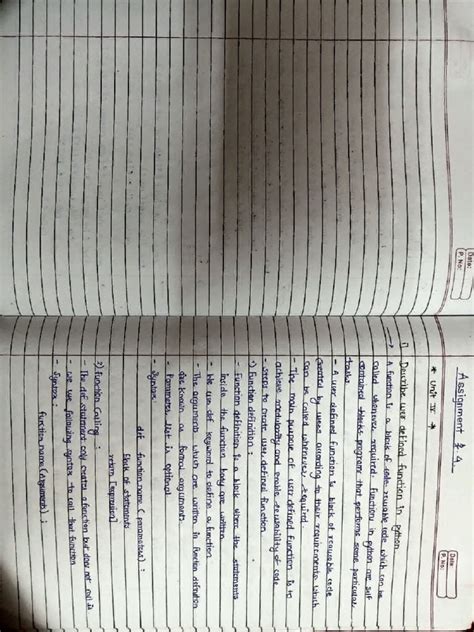 Date:
P. No:
Date:
P. No:
Assignment # 4
* Unit IV →
1) Describe user defined function in python
→ A function is a block of code reusable code which can be
called whenever required. Functions in python are self
contained programs that performs some particular
tasks.
- A user defined function is block of reusable code
created by users according to their requirements which
can be called whenever required.
- The main purpose of user defined function is to
achieve modularity and enable reusability of code
- Steps to create user defined function
1) Function definition:
- Function definition is a block where the statements
inside the function body are written
- We use def keyword to define a function
- The arguments which are written in function definition
are known as formal arguments.
- Parameter list is optional
- Syntax:
def function name (parameters) :
block of statements
return [expression]
2) Function calling:
- The def statement only creates a function but does not call it
- We use following syntax to call that function
- Syntax:
function name (arguments) ;